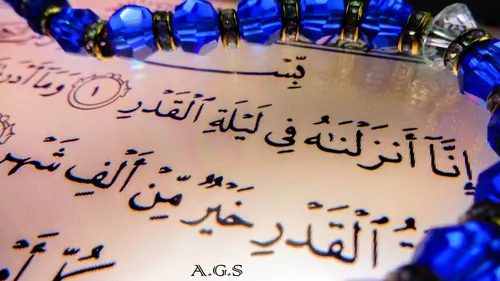 بِسْ
إِنَّآ أَنزَلْنَـٰهُ فِى لَيْلَةِ ٱلْقَدْرِ ١ وَمَآ أَدْر
ٱلْقَدْرِ خَيْرٌ مِّنْ أَلْفِ شَهْر
A.G.S